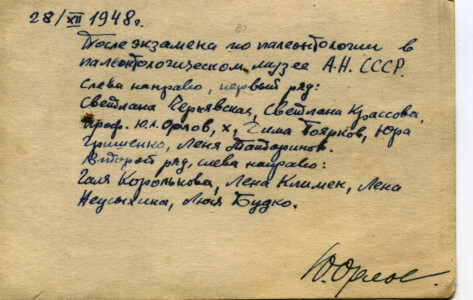 28/XII 1948г.
После экзамена по палеонтологии в
палеонтологическом музее А.Н. СССР.
Слева направо, первый ряд:
Светлана Чернявская, Светлана Крассова,
проф. Ю.А. Орлов, х, Дима Боярков, Юра
Грищенко, Леня Татаринов.
Второй ряд, слева направо:
Галя Королькова, Лена Климек, Лена
Неусыхина, Люся Будко.
Ю. Орлов.